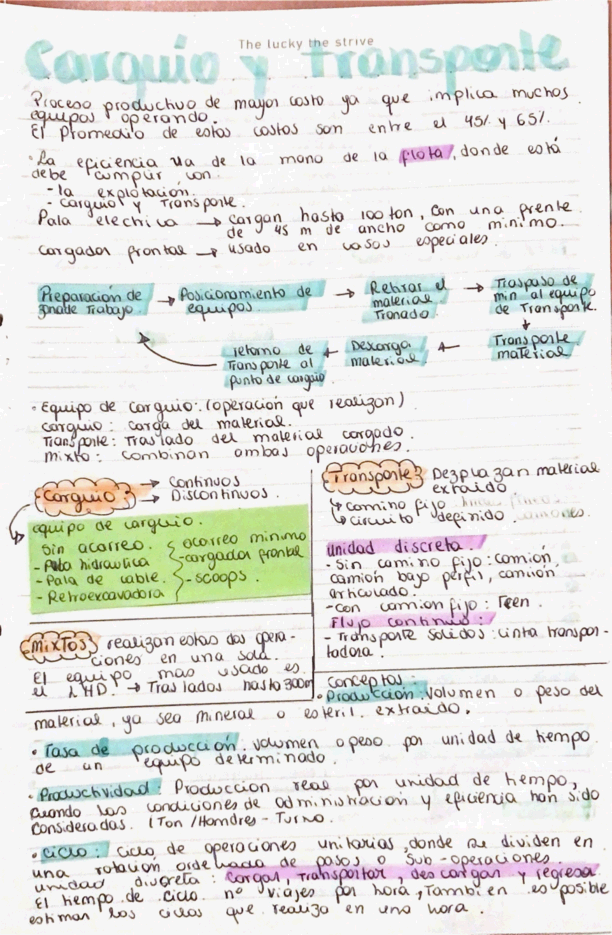 The lucky the strive
Carguio y transporte
Proceso productivo de mayor costo ya que implica muchos
equipos operando.
El Promedio de estos costos son entre el 45% y 65%.
La eficiencia va de la mano de la flota, donde está
debe cumplir con
- la explotación.
- Carguio y Transporte.
Pala electrica → cargan hasta 100 ton, con una frente
de 45 m de ancho como minimo.
Cargador frontal → usado en casos especiales.
Preparación de
zona de trabajo
→ Posicionamiento de
equipos.
→ Retirar el
material
Tronado
→ Traspaso de
min al equipo
de Transporte.
Transporte
material
← Descarga
material
← retorno de
Transporte al
punto de carguio
· Equipo de carguio: (operación que realizan)
carguio: carga del material.
Transporte: Traslado del material cargado.
mixto: combinan ambas operaciones.
Carguio:
→ Continuos
→ Discontinuos.
equipo de carguio.
Sin acarreo.
- Pala hidraulica
- Pala de cable.
- Retroexcavadora
acarreo minimo
- cargador frontal
- scoops.
Transporte: Dezplazan material
extraido
↳ camino fijo
↳ circuito definido
unidad discreta.
- Sin camino fijo: camión,
camión bajo perfil, camión
articulado.
- con camion fijo: Tren.
Flujo continuo:
- Transporte solidos: cinta transpor-
tadora.
Mixtos realizan estas dos opera-
ciones en una sola.
El equipo mas usado es
el LHD. → Traslados hasta 300m
conceptos:
· Producción: volumen o peso del
material, ya sea mineral o esteril. extraido.
· Tasa de producción: volumen o peso por unidad de tiempo.
de un equipo determinado.
· Productividad: Produccion real por unidad de tiempo,
cuando las condiciones de administración y eficiencia han sido
consideradas. (Ton/Hombres - Turno.
· Ciclo: ciclo de operaciones unitarias, donde se dividen en
una rotación ordenada de pasos o sub-operaciones.
unidad discreta: cargar, transportar, descargar y regresa
El tiempo de ciclo. nº viajes por hora, Tambien es posible
estimar los ciclos que realiza en una hora.